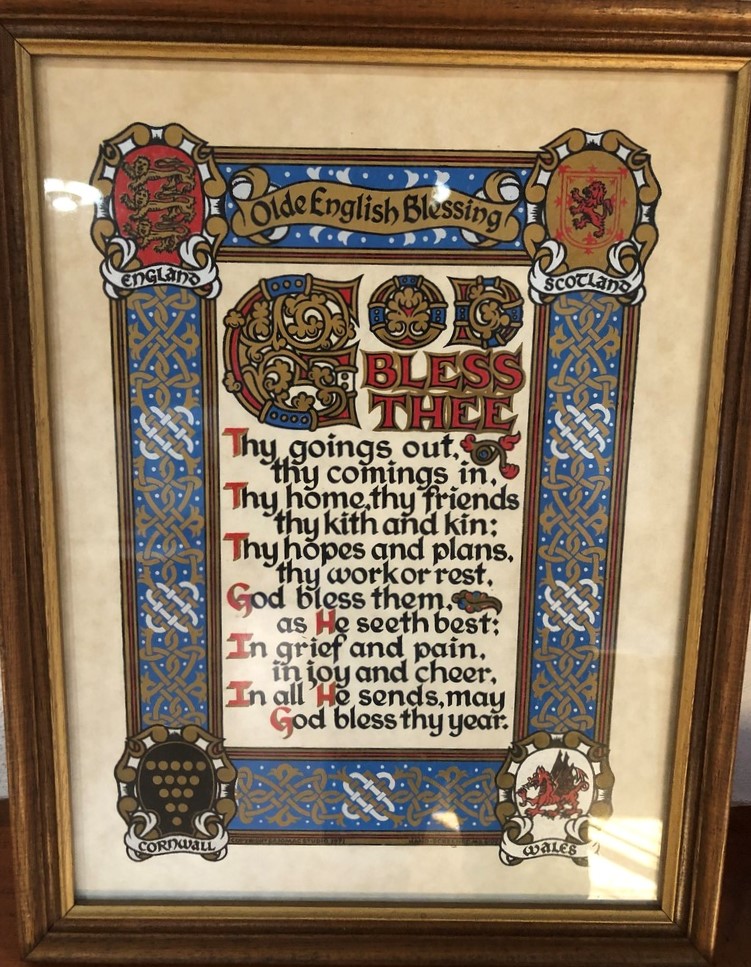 Olde English Blessing
ENGLAND
SCOTLAND
GOD
BLESS
THEE
Thy goings out,
thy comings in,
Thy home, thy friends
thy kith and kin;
Thy hopes and plans,
thy work or rest,
God bless them,
as He seeth best;
In grief and pain,
in joy and cheer,
In all He sends, may
God bless thy year.
CORNWALL
WALES